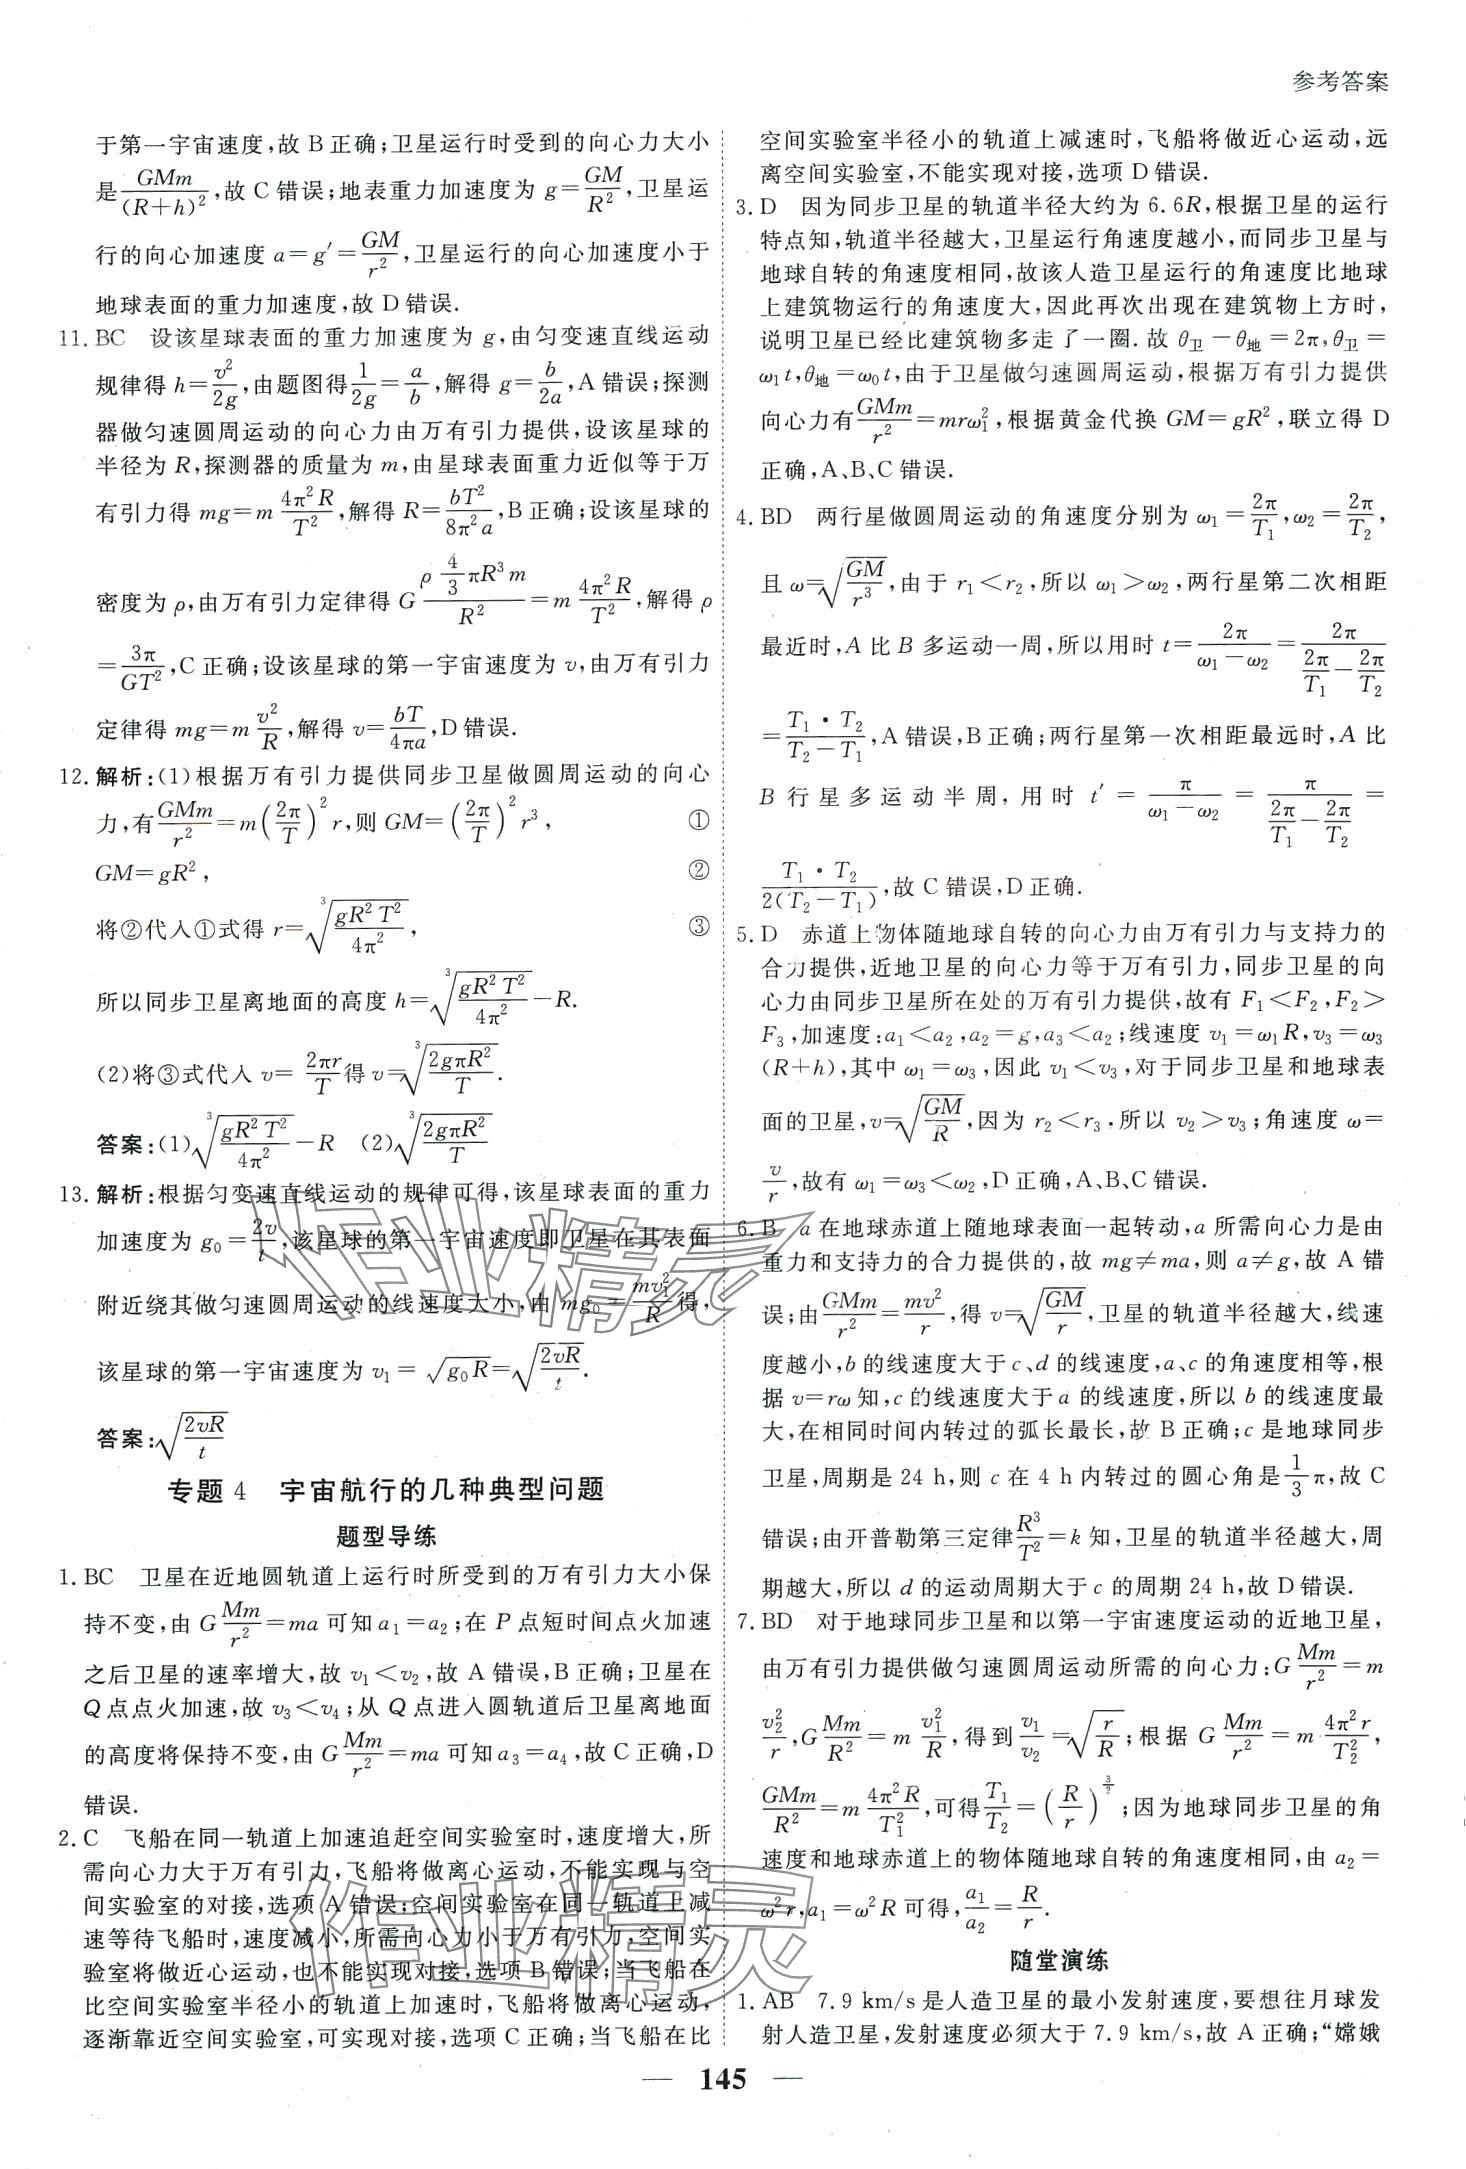 参考答案
于第一宇宙速度,故 B 正确;卫星运行时受到的向心力大小
是$\frac{GMm}{(R+h)^2}$,故 C 错误;地表重力加速度为 $g=\frac{GM}{R^2}$,卫星运
行的向心加速度 $a=g'=\frac{GM}{r^2}$,卫星运行的向心加速度小于
地球表面的重力加速度,故 D 错误.
11. BC 设该星球表面的重力加速度为 g,由匀变速直线运动
规律得 $h=\frac{v^2}{2g}$,由题图得$\frac{1}{2g}=\frac{a}{b}$,解得 $g=\frac{b}{2a}$,A 错误;探测
器做匀速圆周运动的向心力由万有引力提供,设该星球的
半径为 R,探测器的质量为 m,由星球表面重力近似等于万
有引力得 $mg=m\frac{4\pi^2R}{T^2}$,解得 $R=\frac{bT^2}{8\pi^2a}$,B 正确;设该星球的
密度为 ρ,由万有引力定律得 $G\frac{\rho\frac{4}{3}\pi R^3m}{R^2}=m\frac{4\pi^2R}{T^2}$,解得 ρ
$=\frac{3\pi}{GT^2}$,C 正确;设该星球的第一宇宙速度为 v,由万有引力
定律得 $mg=m\frac{v^2}{R}$,解得 $v=\frac{bT}{4\pi a}$,D 错误.
12. 解析:(1)根据万有引力提供同步卫星做圆周运动的向心
力,有$\frac{GMm}{r^2}=m\left(\frac{2\pi}{T}\right)^2r$,则 $GM=\left(\frac{2\pi}{T}\right)^2r^3$, ①
$GM=gR^2$, ②
将②代入①式得 $r=\sqrt[3]{\frac{gR^2T^2}{4\pi^2}}$, ③
所以同步卫星离地面的高度 $h=\sqrt[3]{\frac{gR^2T^2}{4\pi^2}}-R$.
(2)将③式代入 $v=\frac{2\pi r}{T}$得 $v=\sqrt[3]{\frac{2g\pi R^2}{T}}$.
答案:(1)$\sqrt[3]{\frac{gR^2T^2}{4\pi^2}}-R$ (2)$\sqrt[3]{\frac{2g\pi R^2}{T}}$
13. 解析:根据匀变速直线运动的规律可得,该星球表面的重力
加速度为 $g_0=\frac{2v}{t}$,该星球的第一宇宙速度即卫星在其表面
附近绕其做匀速圆周运动的线速度大小,由 $mg_0=\frac{mv_1^2}{R}$得,
该星球的第一宇宙速度为 $v_1=\sqrt{g_0R}=\sqrt{\frac{2vR}{t}}$.
答案:$\sqrt{\frac{2vR}{t}}$
专题 4 宇宙航行的几种典型问题
题型导练
1. BC 卫星在近地圆轨道上运行时所受到的万有引力大小保
持不变,由 $G\frac{Mm}{r^2}=ma$ 可知 $a_1=a_2$;在 P 点短时间点火加速
之后卫星的速率增大,故 $v_1<v_2$,故 A 错误,B 正确;卫星在
Q 点点火加速,故 $v_3<v_4$;从 Q 点进入圆轨道后卫星离地面
的高度将保持不变,由 $G\frac{Mm}{r^2}=ma$ 可知 $a_3=a_4$,故 C 正确,D
错误.
2. C 飞船在同一轨道上加速追赶空间实验室时,速度增大,所
需向心力大于万有引力,飞船将做离心运动,不能实现与空
间实验室的对接,选项 A 错误;空间实验室在同一轨道上减
速等待飞船时,速度减小,所需向心力小于万有引力,空间实
验室将做近心运动,也不能实现对接,选项 B 错误;当飞船在
比空间实验室半径小的轨道上加速时,飞船将做离心运动,
逐渐靠近空间实验室,可实现对接,选项 C 正确;当飞船在比
空间实验室半径小的轨道上减速时,飞船将做近心运动,远
离空间实验室,不能实现对接,选项 D 错误.
3. D 因为同步卫星的轨道半径大约为 6.6R,根据卫星的运行
特点知,轨道半径越大,卫星运行角速度越小,而同步卫星与
地球自转的角速度相同,故该人造卫星运行的角速度比地球
上建筑物运行的角速度大,因此再次出现在建筑物上方时,
说明卫星已经比建筑物多走了一圈.故 $\theta_卫-\theta_地=2\pi,\theta_卫=$
$\omega_1t,\theta_地=\omega_0t$,由于卫星做匀速圆周运动,根据万有引力提供
向心力有$\frac{GMm}{r^2}=mr\omega_1^2$,根据黄金代换 $GM=gR^2$,联立得 D
正确,A、B、C 错误.
4. BD 两行星做圆周运动的角速度分别为 $\omega_1=\frac{2\pi}{T_1},\omega_2=\frac{2\pi}{T_2}$,
且 $\omega=\sqrt{\frac{GM}{r^3}}$,由于 $r_1<r_2$,所以 $\omega_1>\omega_2$,两行星第二次相距
最近时,A 比 B 多运动一周,所以用时 $t=\frac{2\pi}{\omega_1-\omega_2}=\frac{2\pi}{\frac{2\pi}{T_1}-\frac{2\pi}{T_2}}$
$=\frac{T_1·T_2}{T_2-T_1}$,A 错误,B 正确;两行星第一次相距最远时,A 比
B 行星多运动半周,用时 $t'=\frac{\pi}{\omega_1-\omega_2}=\frac{\pi}{\frac{2\pi}{T_1}-\frac{2\pi}{T_2}}=$
$\frac{T_1·T_2}{2(T_2-T_1)}$,故 C 错误,D 正确.
5. D 赤道上物体随地球自转的向心力由万有引力与支持力的
合力提供,近地卫星的向心力等于万有引力,同步卫星的向
心力由同步卫星所在处的万有引力提供,故有 $F_1<F_2,F_2>$
$F_3$,加速度:$a_1<a_2,a_2=g,a_3<a_2$;线速度 $v_1=\omega_1R,v_3=\omega_3$
$(R+h)$,其中 $\omega_1=\omega_3$,因此 $v_1<v_3$,对于同步卫星和地球表
面的卫星,$v=\sqrt{\frac{GM}{R}}$,因为 $r_2<r_3$.所以 $v_2>v_3$;角速度 $\omega=$
$\frac{v}{r}$,故有 $\omega_1=\omega_3<\omega_2$,D 正确,A、B、C 错误.
6. B a 在地球赤道上随地球表面一起转动,a 所需向心力是由
重力和支持力的合力提供的,故 $mg\neq ma$,则 $a\neq g$,故 A 错
误;由$\frac{GMm}{r^2}=\frac{mv^2}{r}$,得 $v=\sqrt{\frac{GM}{r}}$,卫星的轨道半径越大,线速
度越小,b 的线速度大于 c、d 的线速度,a、c 的角速度相等,根
据 $v=r\omega$ 知,c 的线速度大于 a 的线速度,所以 b 的线速度最
大,在相同时间内转过的弧长最长,故 B 正确;c 是地球同步
卫星,周期是 24 h,则 c 在 4 h 内转过的圆心角是$\frac{1}{3}\pi$,故 C
错误;由开普勒第三定律$\frac{R^3}{T^2}=k$ 知,卫星的轨道半径越大,周
期越大,所以 d 的运动周期大于 c 的周期 24 h,故 D 错误.
7. BD 对于地球同步卫星和以第一宇宙速度运动的近地卫星,
由万有引力提供做匀速圆周运动所需的向心力:$G\frac{Mm}{r^2}=m$
$\frac{v_2^2}{r},G\frac{Mm}{R^2}=m\frac{v_1^2}{R}$,得到$\frac{v_1}{v_2}=\sqrt{\frac{r}{R}}$;根据 $G\frac{Mm}{r^2}=m\frac{4\pi^2r}{T_2^2}$,
$\frac{GMm}{R^2}=m\frac{4\pi^2R}{T_1^2}$,可得$\frac{T_1}{T_2}=\left(\frac{R}{r}\right)^{\frac{3}{2}}$;因为地球同步卫星的角
速度和地球赤道上的物体随地球自转的角速度相同,由 $a_2=$
$\omega^2r,a_1=\omega^2R$ 可得,$\frac{a_1}{a_2}=\frac{R}{r}$.
随堂演练
1. AB 7.9 km/s 是人造卫星的最小发射速度,要想往月球发
射人造卫星,发射速度必须大于 7.9 km/s,故 A 正确;“嫦娥
— 145 —
作业精灵
作业精灵